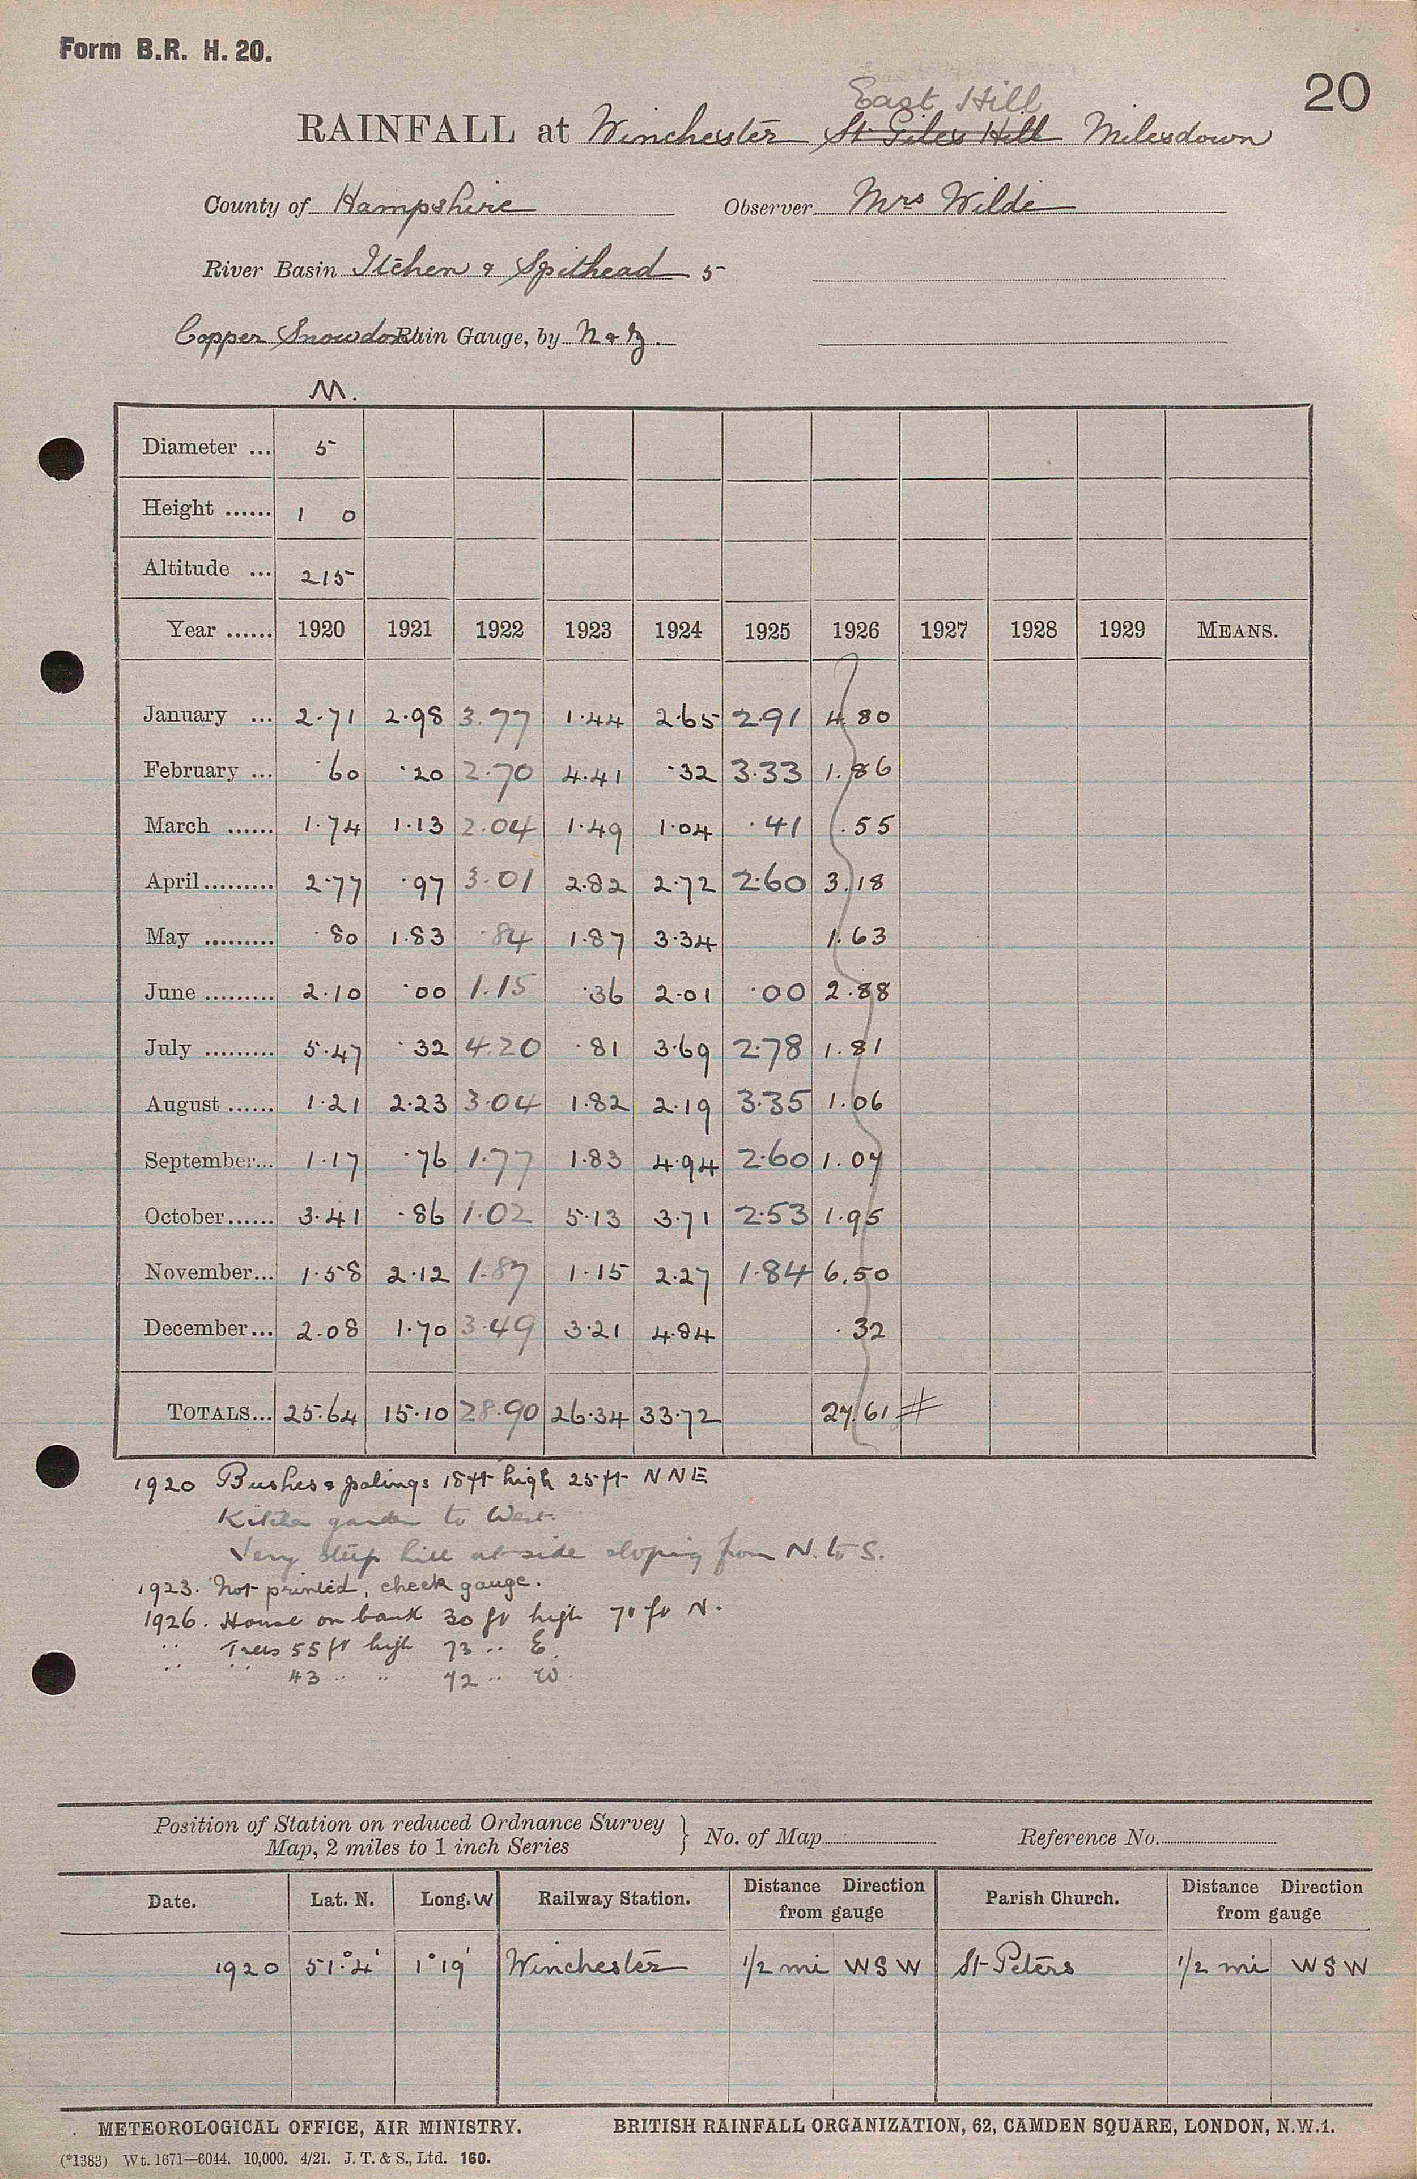 Form B.R. H. 20.
20
East Hill
RAINFALL at Winchester St Giles Hill Milesdown
County of Hampshire Observer Mrs Wilde
River Basin Itchen & Spithead 5
Copper Snowdon Rain Gauge, by N & Z.
M.
Diameter ... 5
Height ...... 1 0
Altitude ... 215
Year ...... 1920 1921 1922 1923 1924 1925 1926 1927 1928 1929 MEANS.
January ... 2.71 2.98 3.77 1.44 2.65 2.91 4.80
February ... .60 .20 2.70 4.41 .32 3.33 1.86
March ...... 1.74 1.13 2.04 1.49 1.04 .41 .55
April ......... 2.77 .97 3.01 2.82 2.72 2.60 3.18
May ......... .80 1.83 .84 1.87 3.34 1.63
June ......... 2.10 .00 1.15 .36 2.01 .00 2.88
July ......... 5.47 .32 4.20 .81 3.69 2.78 1.81
August ...... 1.21 2.23 3.04 1.82 2.19 3.35 1.06
September... 1.17 .76 1.77 1.83 4.94 2.60 1.07
October...... 3.41 .86 1.02 5.13 3.71 2.53 1.95
November... 1.58 2.12 1.87 1.15 2.27 1.84 6.50
December... 2.08 1.70 3.49 3.21 4.84 .32
TOTALS... 25.64 15.10 28.90 26.34 33.72 27.61 #
1920 Bushes & palings 18ft high 25ft NNE
Kitchen garden to West.
Very steep hill at side sloping from N. to S.
1923. Not printed, check gauge.
1926. House on bank 30 ft high 70 ft N.
" Trees 55 ft high 73 " E.
" " 43 " " 72 " W.
Position of Station on reduced Ordnance Survey
Map, 2 miles to 1 inch Series } No. of Map Reference No.
Date. Lat. N. Long. W Railway Station. Distance Direction from gauge Parish Church. Distance Direction from gauge
1920 51°4' 1°19' Winchester 1/2 mi WSW St Peters 1/2 mi WSW
METEOROLOGICAL OFFICE, AIR MINISTRY. BRITISH RAINFALL ORGANIZATION, 62, CAMDEN SQUARE, LONDON, N.W.1.
(*1383) Wt. 1671—6044. 10,000. 4/21. J. T. & S., Ltd. 160.